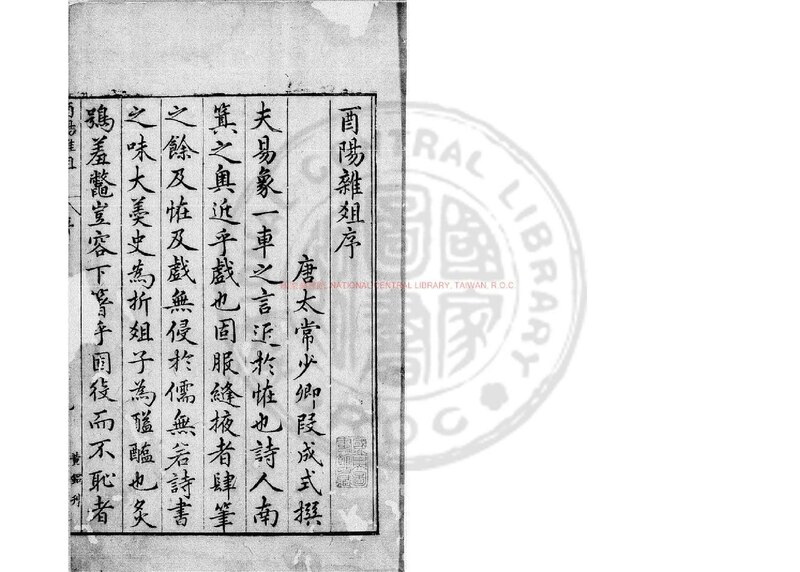 酉陽雜俎序
唐太常少卿段成式撰
夫易象一車之言近於恠也詩人南
箕之奥近乎戲也固服縫掖者肆筆
之餘及恠及戲無侵於儒無若詩書
之味大羹史為折俎子為醯醢也炙
鴞羞鼈豈容下箸乎固役而不恥者
酉陽雜俎
序
黄鉊刋
NATIONAL CENTRAL LIBRARY, TAIWAN, R.O.C
CENTRAL LIBRARY
R.O.C
國家圖書